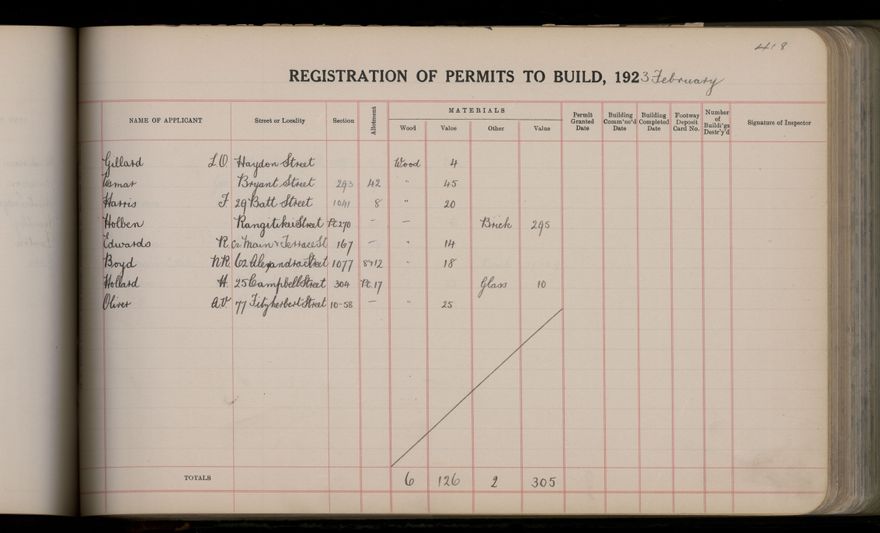 418
REGISTRATION OF PERMITS TO BUILD, 1923 February
NAME OF APPLICANT Street or Locality Section Allotment MATERIALS Wood Value Other Value Permit Granted Date Building Comm'nc'd Date Building Completed Date Footway Deposit Card No. Number of Buildi'gs Destr'y'd Signature of Inspector
Gillard L.O Haydon Street Wood 4
Bryant Street 293 42 " 45
Harris F 29 Batt Street 1041 8 " 20
Holben Rangitikei Street Pt 270 – – Brick 295
Edwards R Co Main & Terrace St 167 – " 14
Boyd N.R. 62 Alexandra Street 1077 8 " 18
Hollard H. 25 Campbell Street 304 Pt. 17 Glass 10
Oliver A.V 77 Fitzherbert Street 10-58 – " 25
TOTALS 6 126 2 305